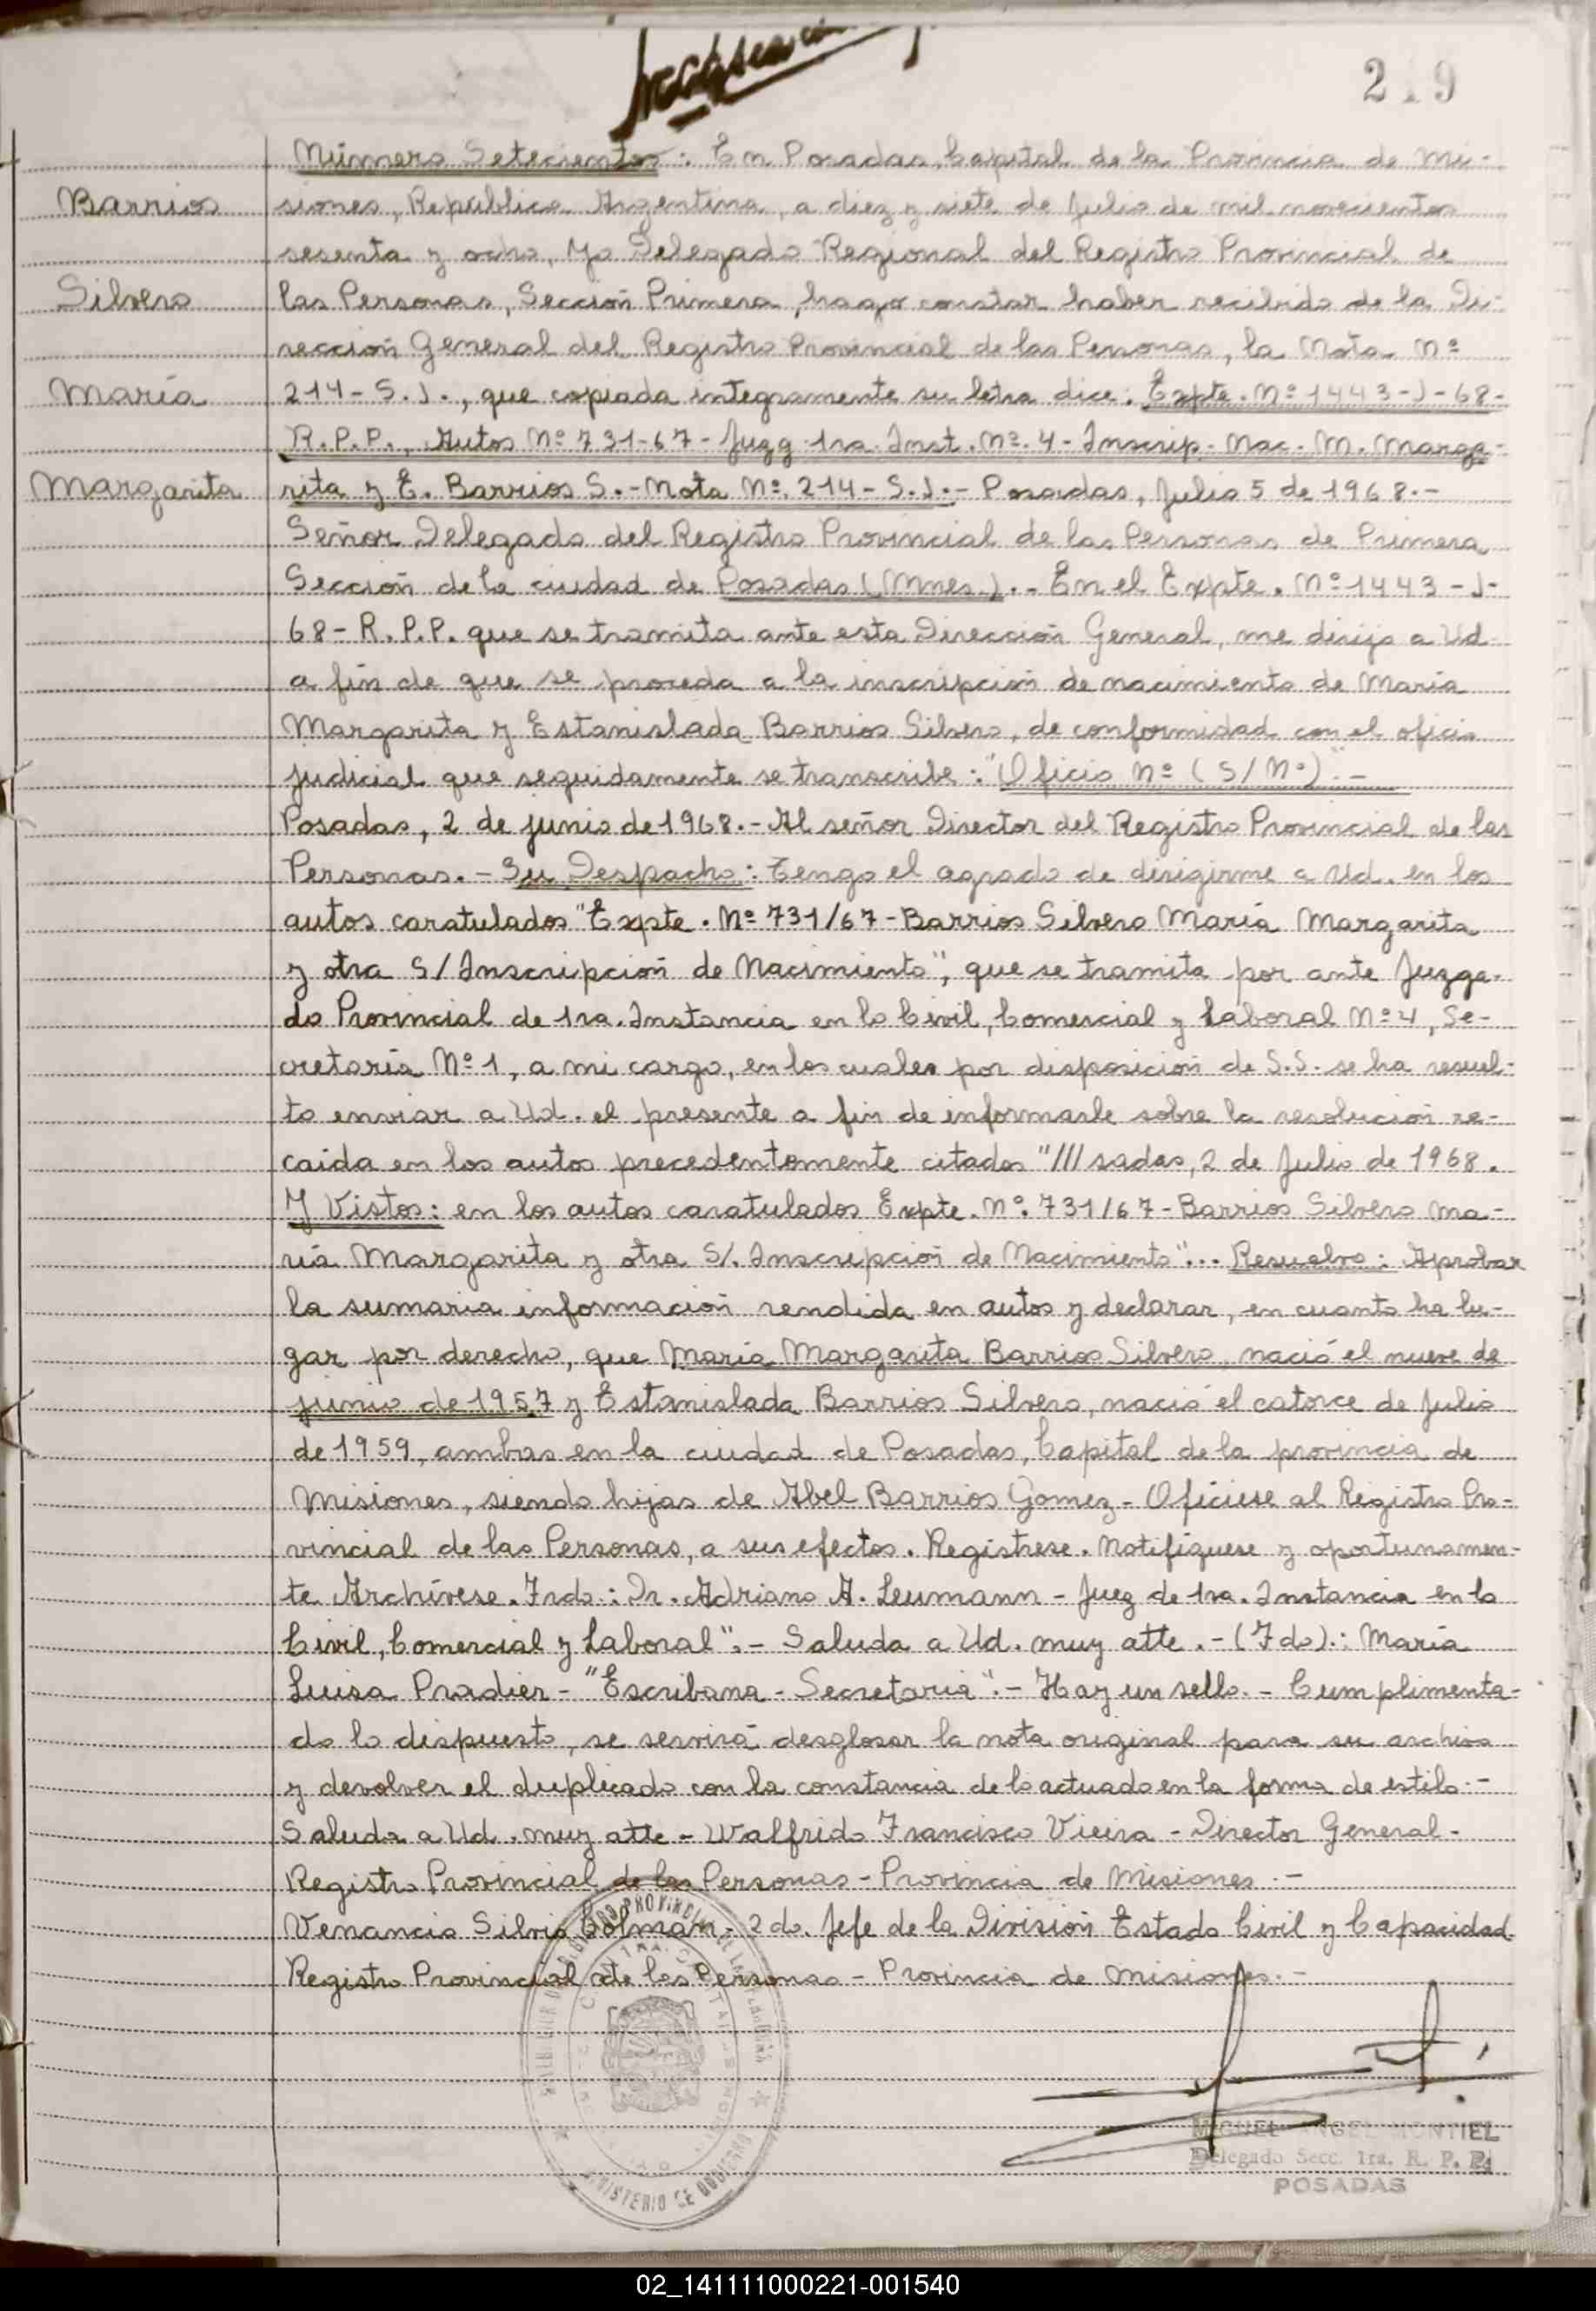 2 9
Número Setecientos: En Posadas, Capital de la Provincia de Mi-
Barrios
siones, República Argentina, a diez y siete de Julio de mil novecientos
sesenta y ocho, Yo Delegado Regional del Registro Provincial de
Silvero
las Personas, Sección Primera, hago constar haber recibido de la Di-
rección General del Registro Provincial de las Personas, la Nota Nº
María
214-S.J., que copiada integramente su letra dice: Expte. Nº 1443-J-68-
R.P.P., Autos Nº 731-67-Juzg 1ra. Inst. Nº. 4-Inscrip. Nac. M. Marga-
Margarita
rita y E. Barrios S.-Nota Nº. 214-S.J.- Posadas, Julio 5 de 1968.-
Señor Delegado del Registro Provincial de las Personas de Primera
Sección de la ciudad de Posadas (Mnes.).- En el Expte. Nº 1443-J-
68-R.P.P. que se tramita ante esta Dirección General, me dirijo a Ud
a fin de que se proceda a la inscripción de nacimiento de María
Margarita y Estanislada Barrios Silvero, de conformidad con el oficio
judicial que seguidamente se transcribe: "Oficio Nº (S/Nº)".-
Posadas, 2 de junio de 1968.- Al señor Director del Registro Provincial de las
Personas.- Su Despacho: Tengo el agrado de dirigirme a Ud. en los
autos caratulados "Expte. Nº 731/67-Barrios Silvero María Margarita
y otra S/Inscripción de Nacimiento", que se tramita por ante Juzga-
do Provincial de 1ra. Instancia en lo Civil, Comercial y Laboral Nº 4, Se-
cretaría Nº 1, a mi cargo, en los cuales por disposición de S.S. se ha resuel-
to enviar a Ud. el presente a fin de informarle sobre la resolución re-
caida en los autos precedentemente citados "///sadas, 2 de Julio de 1968.
Y Vistos: en los autos caratulados Expte. Nº. 731/67-Barrios Silvero Ma-
ría Margarita y otra S/. Inscripción de Nacimiento"... Resuelvo: Aprobar
la sumaria información rendida en autos y declarar, en cuanto ha lu-
gar por derecho, que María Margarita Barrios Silvero, nació el nueve de
junio de 1957 y Estanislada Barrios Silvero, nació el catorce de Julio
de 1959, ambas en la ciudad de Posadas, Capital de la provincia de
Misiones, siendo hijas de Abel Barrios Gomez- Oficiese al Registro Pro-
vincial de las Personas, a sus efectos. Registrese. Notifiquese y oportunamen-
te Archívese. Frdo.: Dr. Adriano A. Leumann - Juez de 1ra. Instancia en lo
Civil, Comercial y Laboral".- Saluda a Ud. muy atte.-(Fdo).: María
Luisa Pradier-"Escribana-Secretaria".- Hay un sello.- Cumplimenta-
do lo dispuesto, se servirá desglosar la nota original para su archivo
y devolver el duplicado con la constancia de lo actuado en la forma de estilo.-
Saluda a Ud. muy atte - Walfrido Francisco Vieira - Director General-
Registro Provincial de las Personas - Provincia de Misiones.-
Venancio Silvio Colman - 2do. Jefe de la División Estado Civil y Capacidad
Registro Provincial de las Personas - Provincia de Misiones.-
MINISTERIO DE GOBIERNO
MIGUEL ANGEL MONTIEL
Delegado Secc. 1ra. R. P. P.
POSADAS
02_141111000221-001540